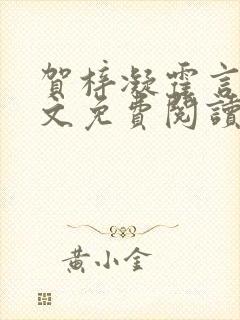 賀梓凝霍言
文免費閱讀
黃小金